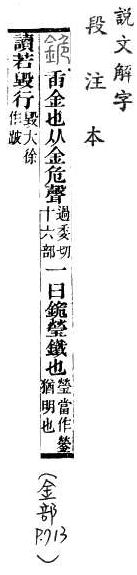 説文解字
段注本
臿金也从金危聲
過委切
十六部
一曰瑩鐵也
瑩當作鎣
猶明也
讀若毀行
毀大徐
作跛
(金部P.713)